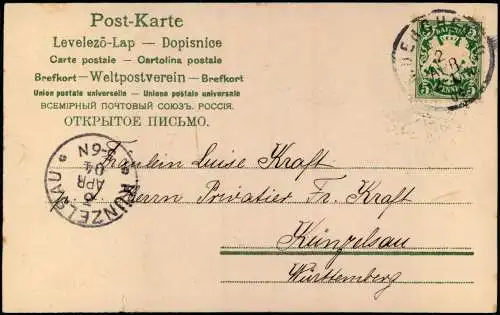 Post-Karte
Levelező-Lap — Dopisnice
Carte postale — Cartolina postale
Brefkort — Weltpostverein — Brefkort
Union postale universelle — Unione postale universale
ВСЕМІРНЫЙ ПОЧТОВЫЙ СОЮЗЪ. РОССІЯ.
ОТКРЫТОЕ ПИСЬМО.
5 5
KÜNZELSAU
6 APR 04
Fräulein Luise Kraft
Herrn Privatier Fr. Kraft
Künzelsau
Württemberg